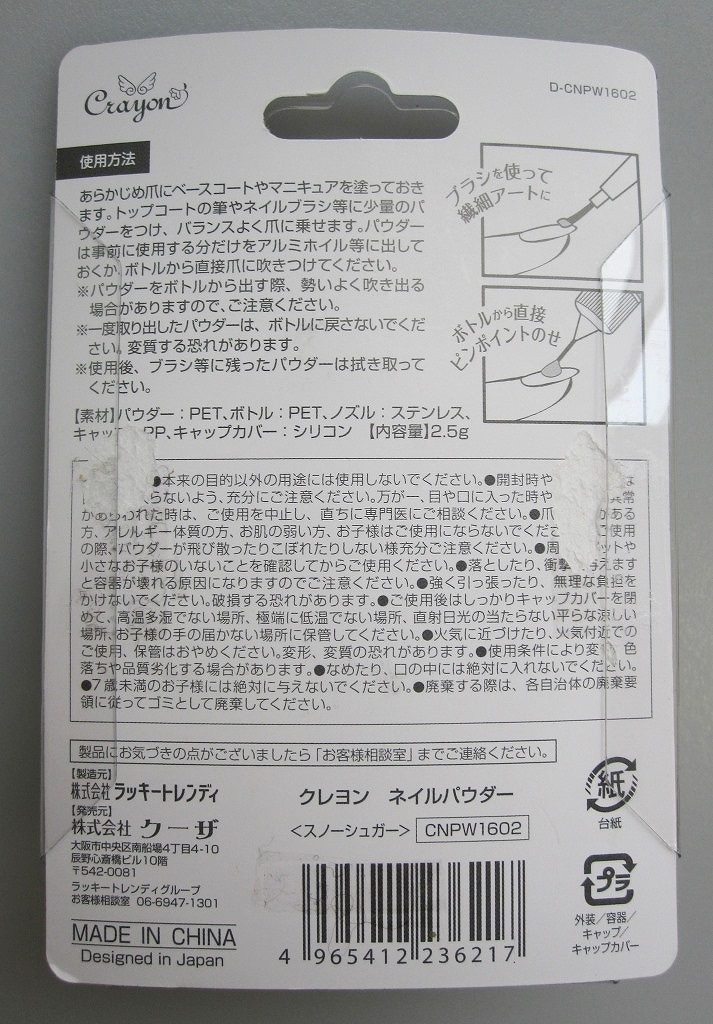 Crayon
D-CNPW1602
使用方法
あらかじめ爪にベースコートやマニキュアを塗っておき
ます。トップコートの筆やネイルブラシ等に少量のパ
ウダーをつけ、バランスよく爪に乗せます。パウダー
は事前に使用する分だけをアルミホイル等に出して
おくか、ボトルから直接爪に吹きつけてください。
※パウダーをボトルから出す際、勢いよく吹き出る
場合がありますので、ご注意ください。
※一度取り出したパウダーは、ボトルに戻さないでくだ
さい。変質する恐れがあります。
※使用後、ブラシ等に残ったパウダーは拭き取って
ください。
ブラシを使って
繊細アートに
ボトルから直接
ピンポイントのせ
【素材】パウダー：PET、ボトル：PET、ノズル：ステンレス、
キャップ：PP、キャップカバー：シリコン 【内容量】2.5g
●本来の目的以外の用途には使用しないでください。●開封時や
らないよう、充分にご注意ください。万が一、目や口に入った時や
われた時は、ご使用を中止し、直ちに専門医にご相談ください。●爪 がある
方、アレルギー体質の方、お肌の弱い方、お子様はご使用にならないでくだ ご使用
の際、パウダーが飛び散ったりこぼれたりしない様充分ご注意ください。●周 ットや
小さなお子様のいないことを確認してからご使用ください。●落としたり、衝撃 与えます
と容器が壊れる原因になりますのでご注意ください。●強く引っ張ったり、無理な負担を
かけないでください。破損する恐れがあります。●ご使用後はしっかりキャップカバーを閉
めて、高温多湿でない場所、極端に低温でない場所、直射日光の当たらない平らな涼しい
場所、お子様の手の届かない場所に保管してください。●火気に近づけたり、火気付近での
ご使用、保管はおやめください。変形、変質の恐れがあります。●使用条件により変 色
落ちや品質劣化する場合があります。●なめたり、口の中には絶対に入れないでください。
●7歳未満のお子様には絶対に与えないでください。●廃棄する際は、各自治体の廃棄要
領に従ってゴミとして廃棄してください。
製品にお気づきの点がございましたら「お客様相談室」までご連絡ください。
【製造元】
株式会社 ラッキートレンディ
【発売元】
株式会社 クーザ
大阪市中央区南船場4丁目4-10
辰野心斎橋ビル10階
〒542-0081
ラッキートレンディグループ
お客様相談室 06-6947-1301
MADE IN CHINA
Designed in Japan
クレヨン ネイルパウダー
＜スノーシュガー＞ CNPW1602
4 965412 236217
紙
台紙
プラ
外装／容器／
キャップ／
キャップカバー